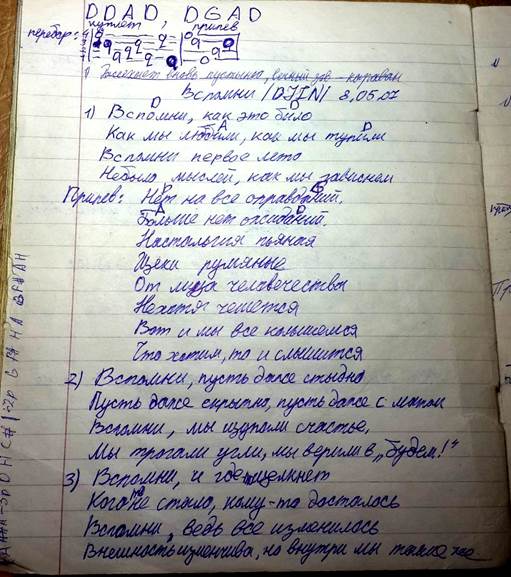 DDAD, DGAD
куплет припев
перебор:
вновь пустыня, вечный зов - караван
Вспомни /DJIN/ 8,05.07
D D
1) Вспомни, как это было
A D
Как мы любили, как мы тупили
Вспомни первое лето
Небыло мыслей, как мы зависнем
D G
Припев: Нет на все оправданий.
A D
Больше нет ожиданий.
Настольгия пьяная
Щеки румяные
От лица человечества
Нехотя чешется
Вот и мы все колышемся
Что хотим, то и слышится
2) Вспомни, пусть даже стыдно
Пусть даже скрытно, пусть даже с матом
Вспомни, мы изучали счастье,
Мы трогали угли, мы верили в „будем!"
3) Вспомни, и где щелкнет
Кого не стало, кому-то досталось
Вспомни, ведь все изменилось
Внешность изменчива, но внутри мы такие же